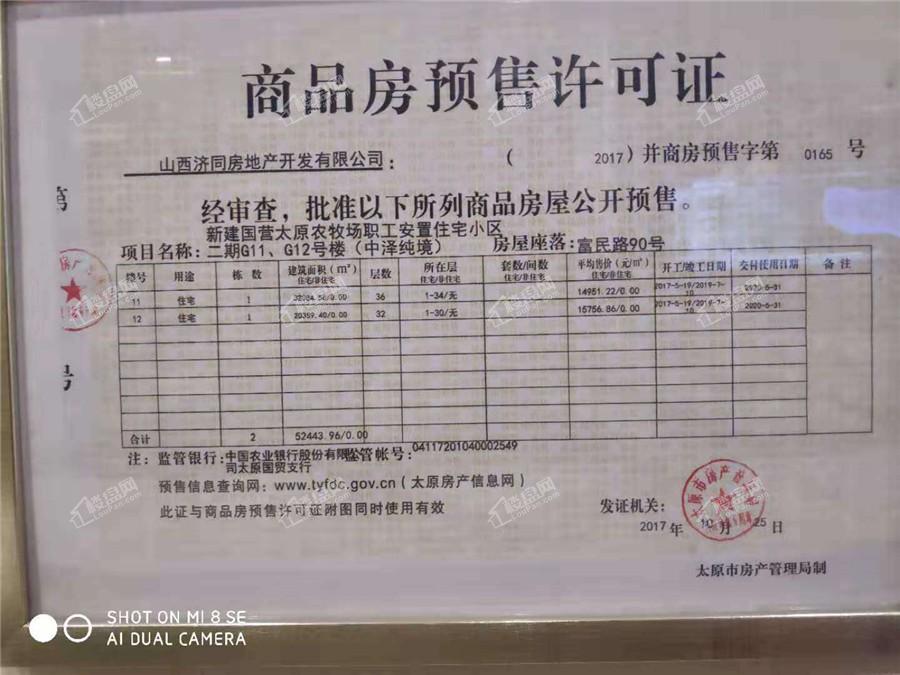 商品房预售许可证
山西济同房地产开发有限公司： （ 2017）并商房预售字第 0165 号
经审查，批准以下所列商品房屋公开预售。
新建国营太原农牧场职工安置住宅小区
项目名称：二期G11、G12号楼（中泽纯境） 房屋座落：富民路90号
幢号 用途 栋数 建筑面积（㎡） 层数 所在层 套数/间数 平均售价（元/㎡） 开工/竣工日期 交付使用日期 备注
住宅/非住宅 住宅/非住宅 住宅/非住宅 住宅/非住宅
11 住宅 1 36 1-34/无 14951.22/0.00 2017-5-19/2019-7-10 2020-6-31
12 住宅 1 20359.40/0.00 32 1-30/无 15756.86/0.00 2017-5-19/2019-7-10 2020-6-31
合计 2 52443.96/0.00
注：监管银行：中国农业银行股份有限 监管帐号：04117201040002549
司太原国贸支行
预售信息查询网：www.tyfdc.gov.cn（太原房产信息网）
此证与商品房预售许可证附图同时使用有效
发证机关：
2017 年 10 月 25 日
太原市房产管理局制
第
号
SHOT ON MI 8 SE
AI DUAL CAMERA
楼盘网
LouPan.com